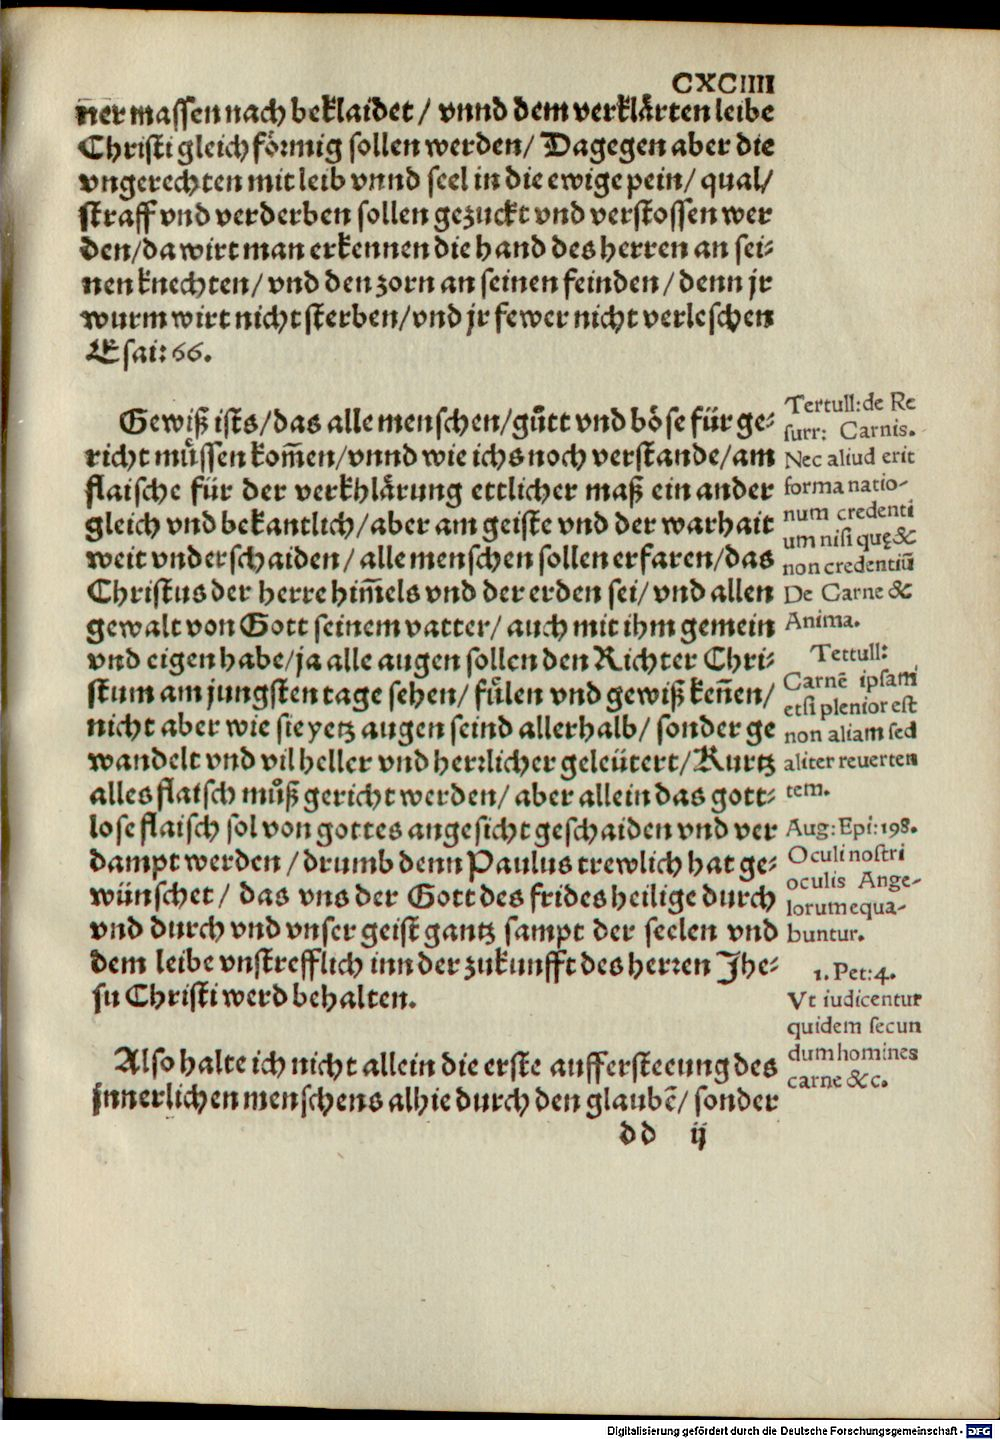 CXCIIII
ner massen nach beklaidet/ vnnd dem verklärten leibe
Christi gleich förmig sollen werden/ Dagegen aber die
vngerechten mit leib vnnd seel in die ewige pein/ qual/
straff vnd verderben sollen gezuckt vnd verstossen wer
den/da wirt man erkennen die hand des herren an sei-
nen knechten/ vnd den zorn an seinen feinden/ denn jr
wurm wirt nicht sterben/vnd jr fewer nicht verleschen
Esai: 66.
Gewiß ists/das alle menschen/gůtt vnd böse für ge-
richt müssen kom̄en/vnnd wie ichs noch verstande/am
flaische für der verkhlärung ettlicher maß ein ander
gleich vnd bekantlich/aber am geiste vnd der warhait
weit vnderschaiden/ alle menschen sollen erfaren/das
Christus der herre him̄els vnd der erden sei/ vnd allen
gewalt von Gott seinem vatter/ auch mit ihm gemein
vnd eigen habe/ja alle augen sollen den Richter Chri-
stum am jungsten tage sehen/ fülen vnd gewiß ken̄en/
nicht aber wie sie yetz augen seind allerhalb/ sonder ge
wandelt vnd vil heller vnd herrlicher geleütert/ Kurtz
alles flaisch můß gericht werden/ aber allein das gott-
lose flaisch sol von gottes angesicht geschaiden vnd ver
dampt werden/ drumb denn Paulus trewlich hat ge-
wünschet/ das vns der Gott des frides heilige durch
vnd durch vnd vnser geist gantz sampt der seelen vnd
dem leibe vnstrefflich inn der zukunfft des herren Jhe-
su Christi werd behalten.
Also halte ich nicht allein die erste aufferstecung des
jnnerlichen menschens alhie durch den glaubē/ sonder
dd ij
Tertull: de Re
surr: Carnis.
Nec aliud erit
forma natio-
num credenti
um nisi quę &
non credentiū
De Carne &
Anima.
Tettull:
Carnē ipsam
etsi plenior est
non aliam sed
aliter reuerten
tem.
Aug: Epi: 198.
Oculi nostri
oculis Ange-
lorum equa-
buntur.
1. Pet: 4.
Vt iudicentur
quidem secun
dum homines
carne &c.
Digitalisierung gefördert durch die Deutsche Forschungsgemeinschaft - DFG